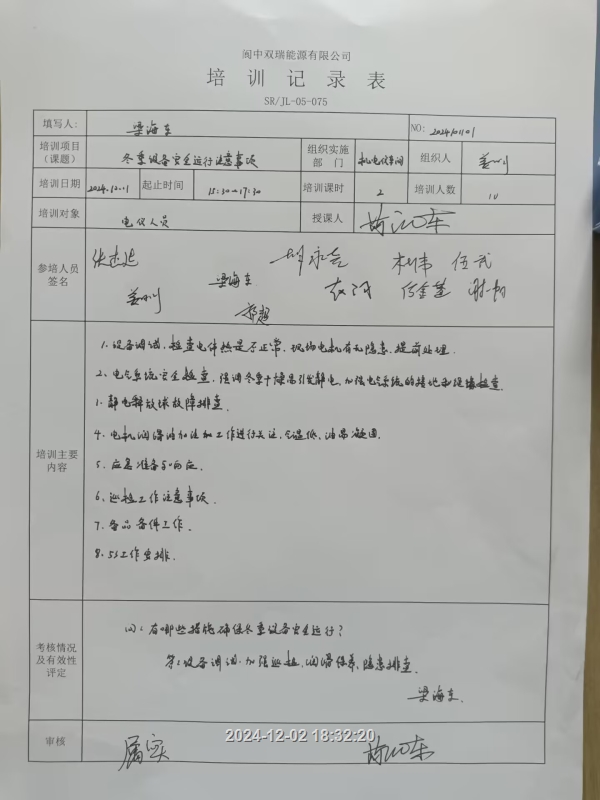 阆中双瑞能源有限公司
培训记录表
SR/JL-05-075
填写人： 梁海东 NO: 2024101101
培训项目（课题） 冬季设备安全运行注意事项 组织实施部门 机电仪车间 组织人 姜川
培训日期 2024.12.1 起止时间 15:30-17:30 培训课时 2 培训人数 10
培训对象 电仪人员 授课人
参培人员签名 梁海东 杜伟 伍武
姜川
培训主要内容
1、设备调试，检查电伴热是否正常，现场电机有无隐患，提前处理.
2、电气系统安全检查，强调冬季干燥易引发静电，加强电气系统的接地和绝缘检查
1、静电释放球故障排查.
4、电机润滑油加注加工作进行关注，气温低，油易凝固.
5、应急准备和响应.
6、巡检工作注意事项.
7、备品备件工作.
8、5S工作安排.
考核情况及有效性评定
问：有哪些措施确保冬季设备安全运行？
答：设备调试，加强巡检，润滑保养，隐患排查.
梁海东.
审核 属实
2024-12-02 18:32:20